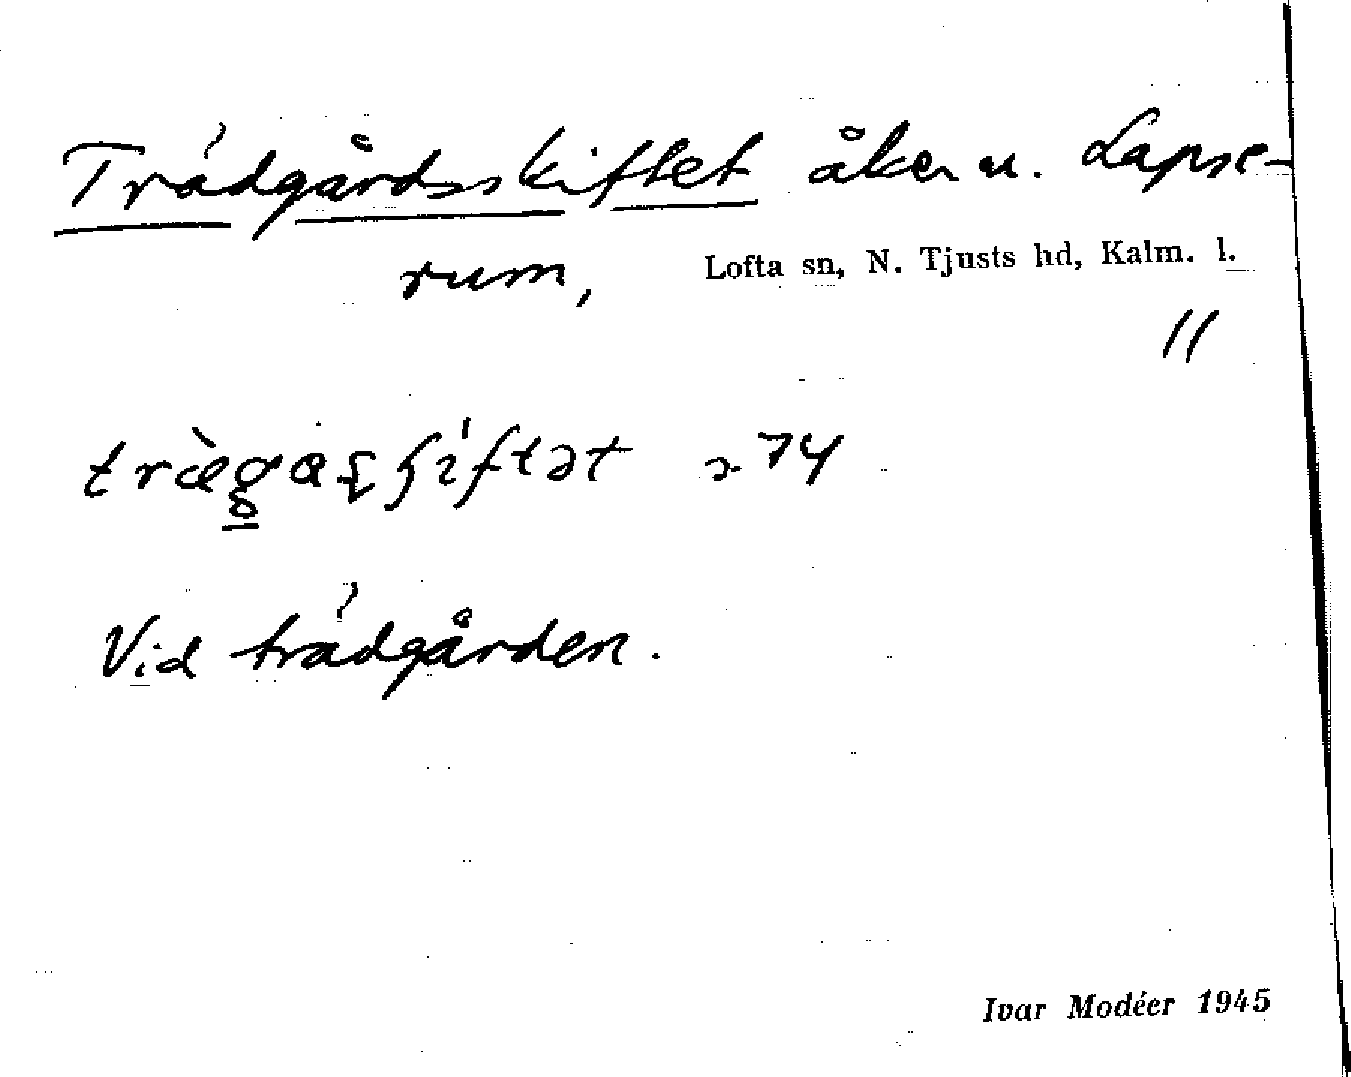 Trädgårdsskiftet åker u. Lapse-
rum, Lofta sn, N. Tjusts hd, Kalm. l.
11
Vid trädgården.
Ivar Modéer 1945